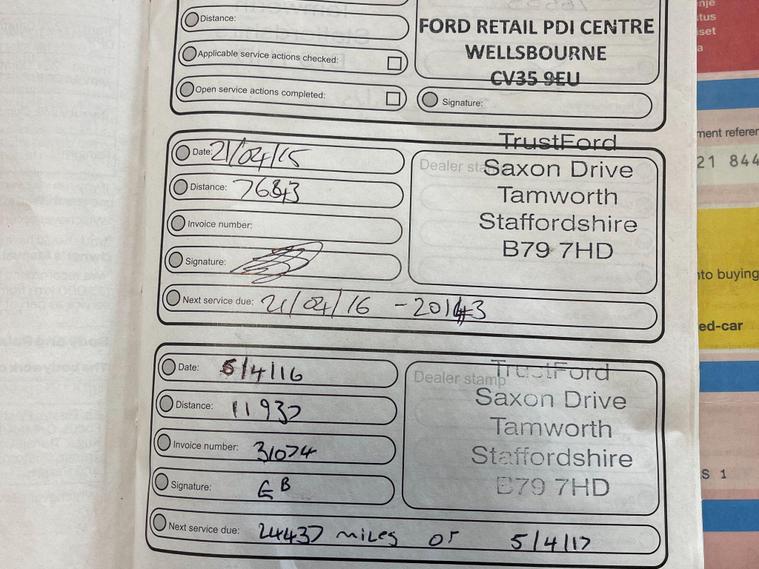 Distance:
Applicable service actions checked:
Open service actions completed:
FORD RETAIL PDI CENTRE
WELLSBOURNE
CV35 9EU
Signature:
Date: 21/04/15
Distance: 7643
Invoice number:
Signature:
Next service due: 21/04/16 - 20143
Dealer stamp
TrustFord
Saxon Drive
Tamworth
Staffordshire
B79 7HD
Date: 5/4/16
Distance: 11937
Invoice number: 31074
Signature: GB
Next service due: 24437 miles or 5/4/17
Dealer stamp
TrustFord
Saxon Drive
Tamworth
Staffordshire
B79 7HD
21 844
nto buying
ed-car
S 1